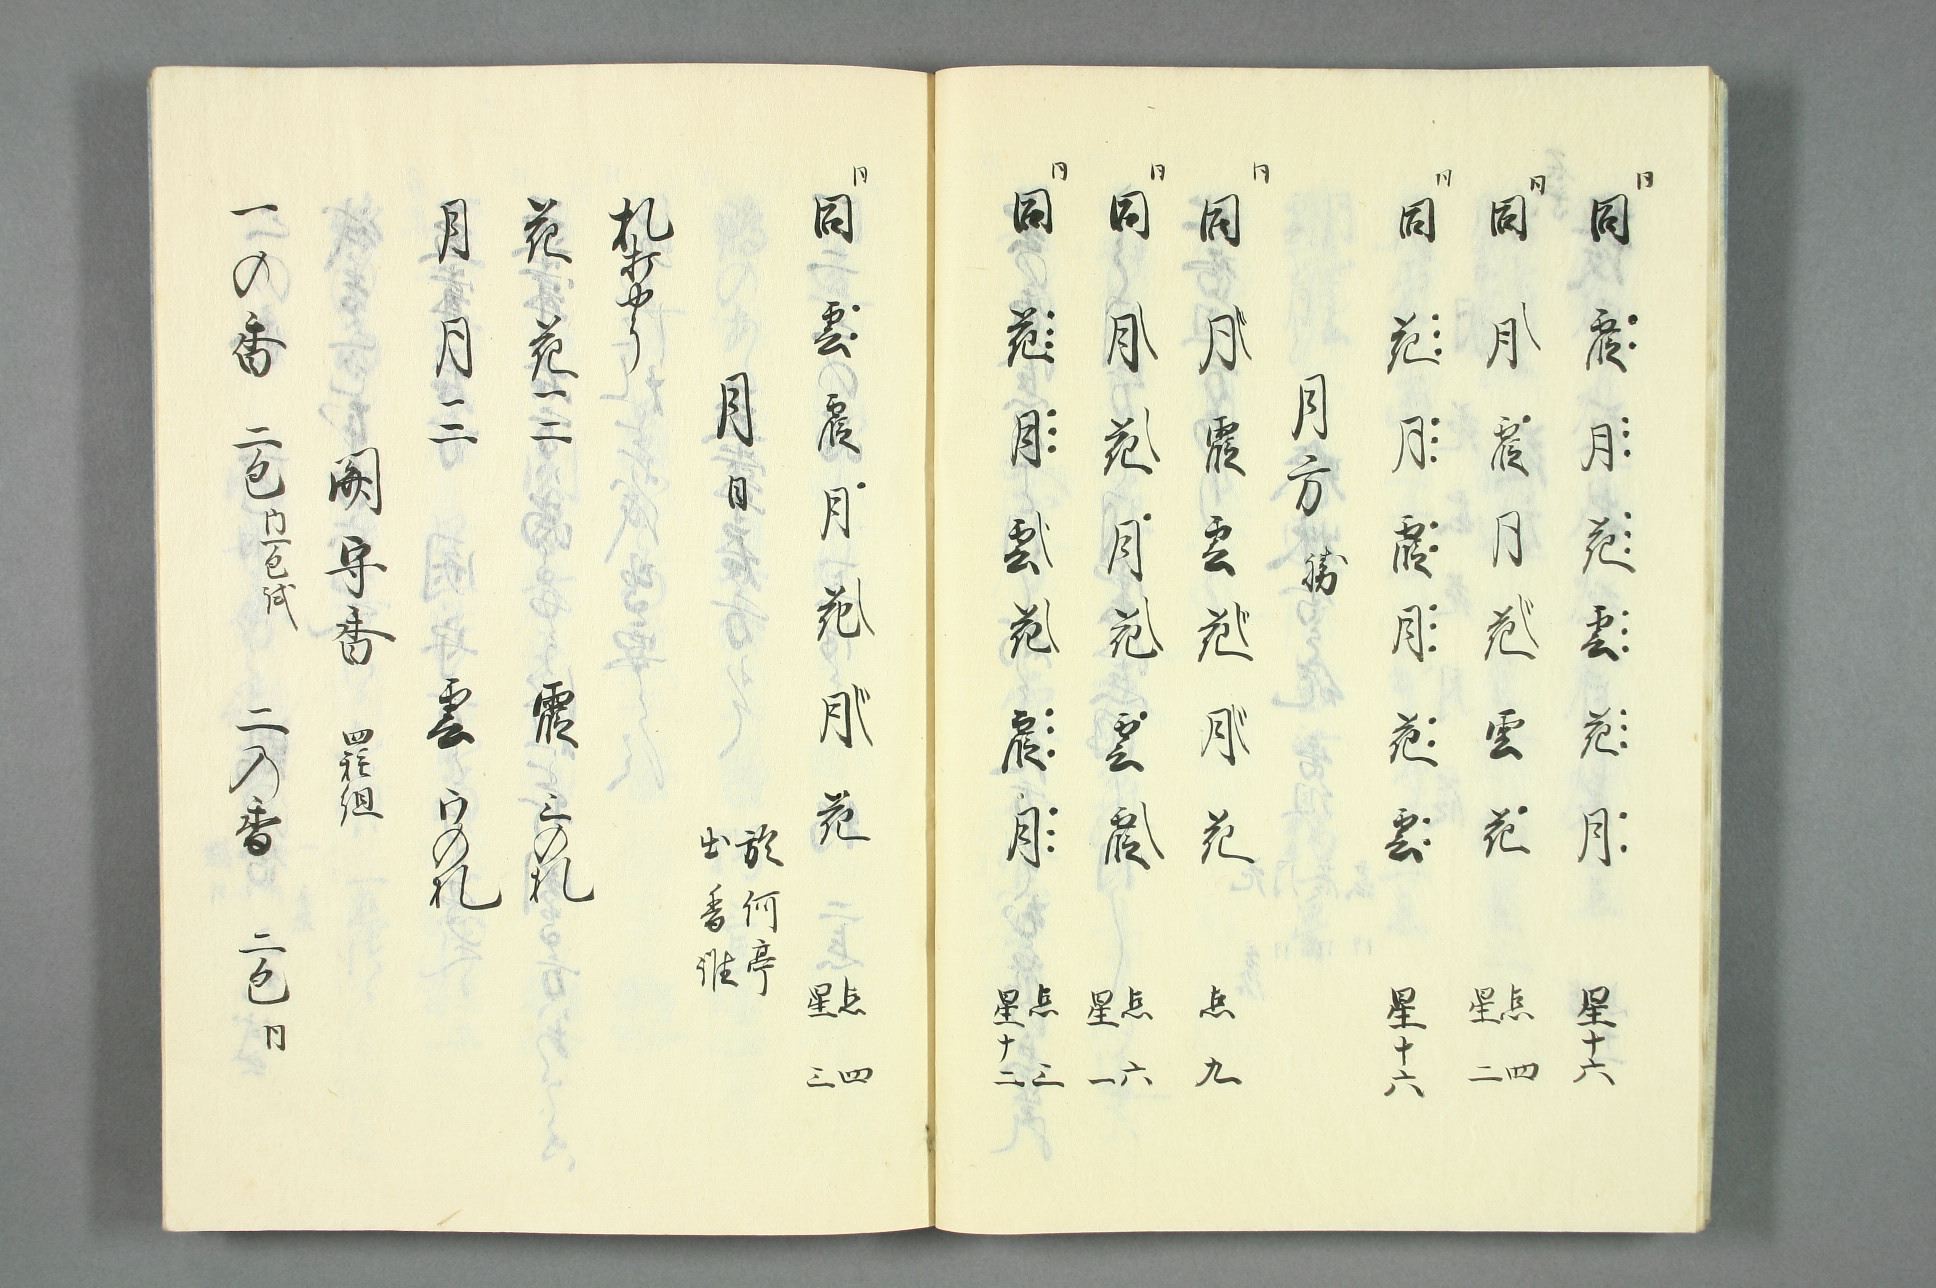 同 霞 月 花 雲 花 月 星十六
同 月 霞 月 花 雲 花 点四 星二
同 花 月 霞 月 花 雲 星十六
月方 勝
同 月 霞 雲 花 月 花 点九
同 月 花 月 花 雲 霞 点六 星一
同 花 月 雲 花 霞 月 点三 星十二
同 雲 霞 月 花 月 花 点四 星三
月日
於何亭
出香誰
札打やう
花花一二 霞 三の札
月月一二 雲 ウの札
関守香 四種組
一の香 二包 内一包試 二の香 二包 同